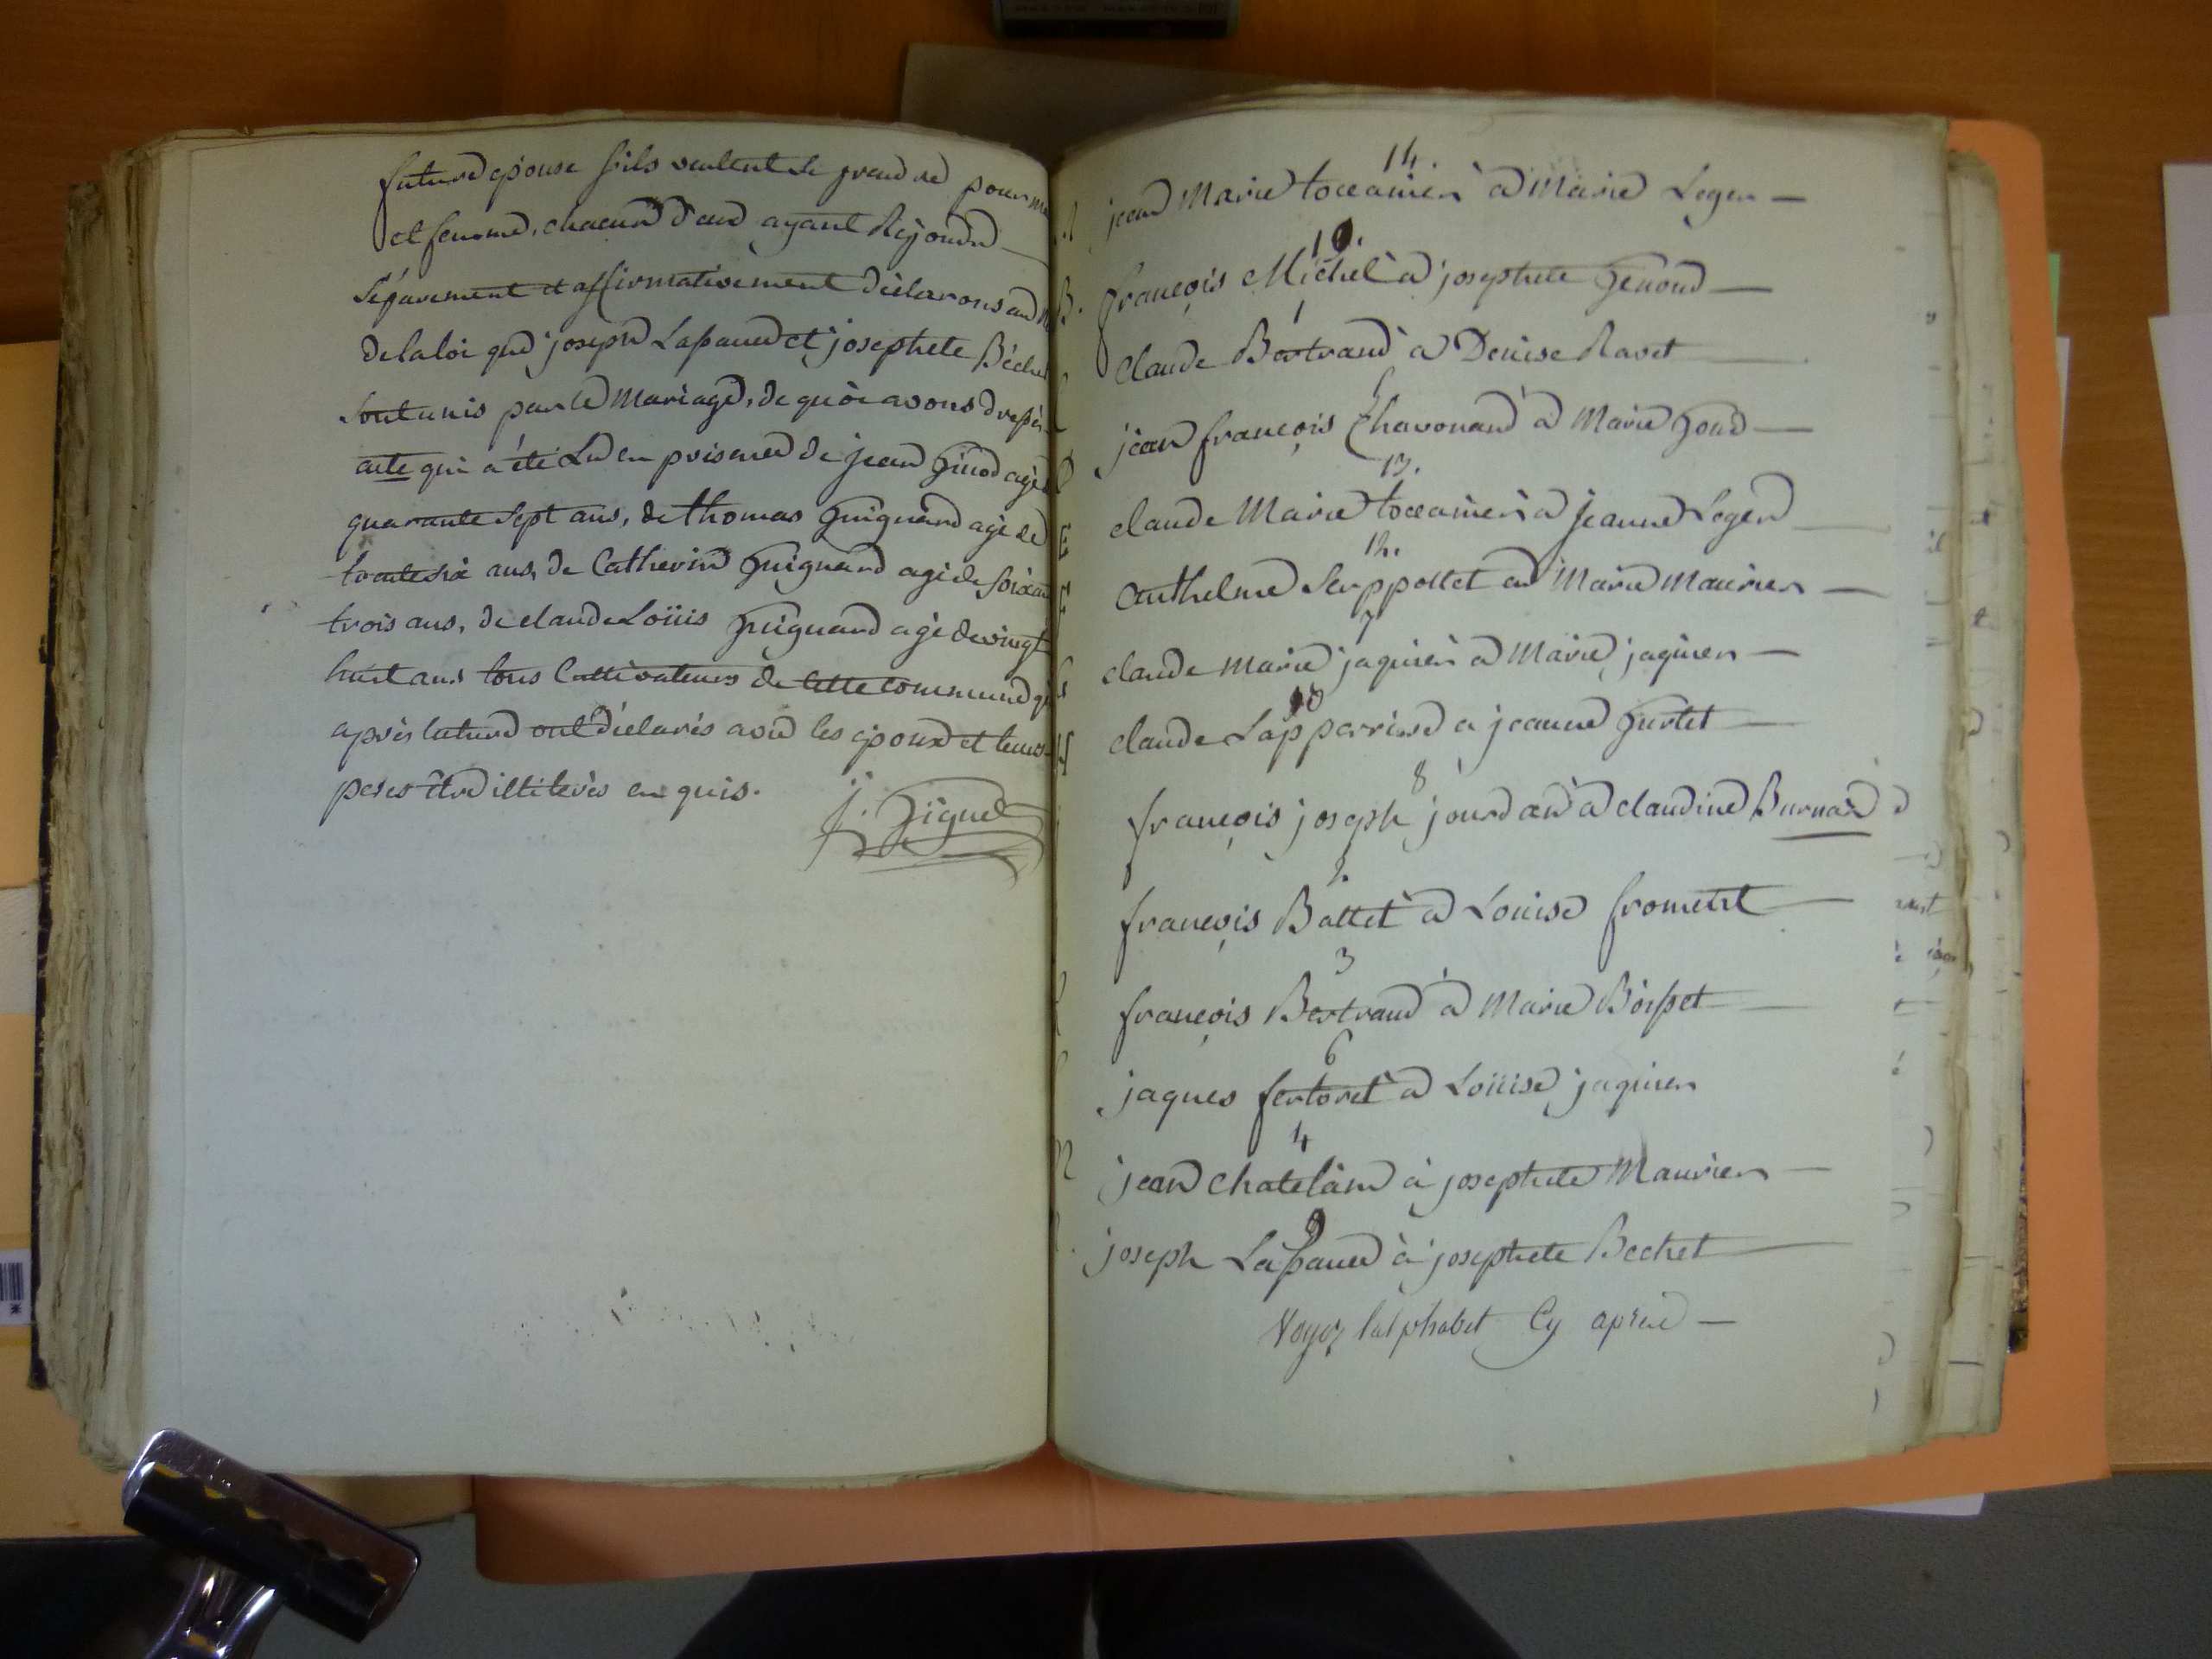 future épouse s'ils veulent se prendre pour
et femme, chacun d'eux ayant Répondu
séparement et affirmativement déclarons au
de la loi que joseph Laßaued et josephete Béchet
sont unis par le mariage, de quoi avons dressé
acte qui a été Lu en présence de jean Ginod agé
quarante sept ans, de thomas guignard agé de
ans, de Catherin guignard agé de soixan
trois ans, de claude Loüis guignard agé de vingt
huit ans tous Cultivateurs de cette commune qui
après lecture ont déclarés avec les époux et leurs
peres être illiterés enquis.
j. Giguet
14.
jean Marie toccanier à Marie Leger —
François Michel à josephete Genoud —
1
claude Bertrand à Denise Ravet
jean françois Chavonand à Marie goud —
13.
claude Marie toccanier à jeanne Leger
12.
anthelme Serppollet à Marie Maurier —
7
claude Marie jaquier à Marie jaquier —
10
claude à jeanne Gurtet
8
françois joseph jourdan à claudine Burnad
2.
françois Battet à Louise froment
3
françois Bertrand à Marie Boisset
6
jaques fertoret à Loüise jaquier
4
jean chatelain à josephete Maurier —
9
joseph Laßaued à josephete Bechet
Voyez l'alphabet Cy après —